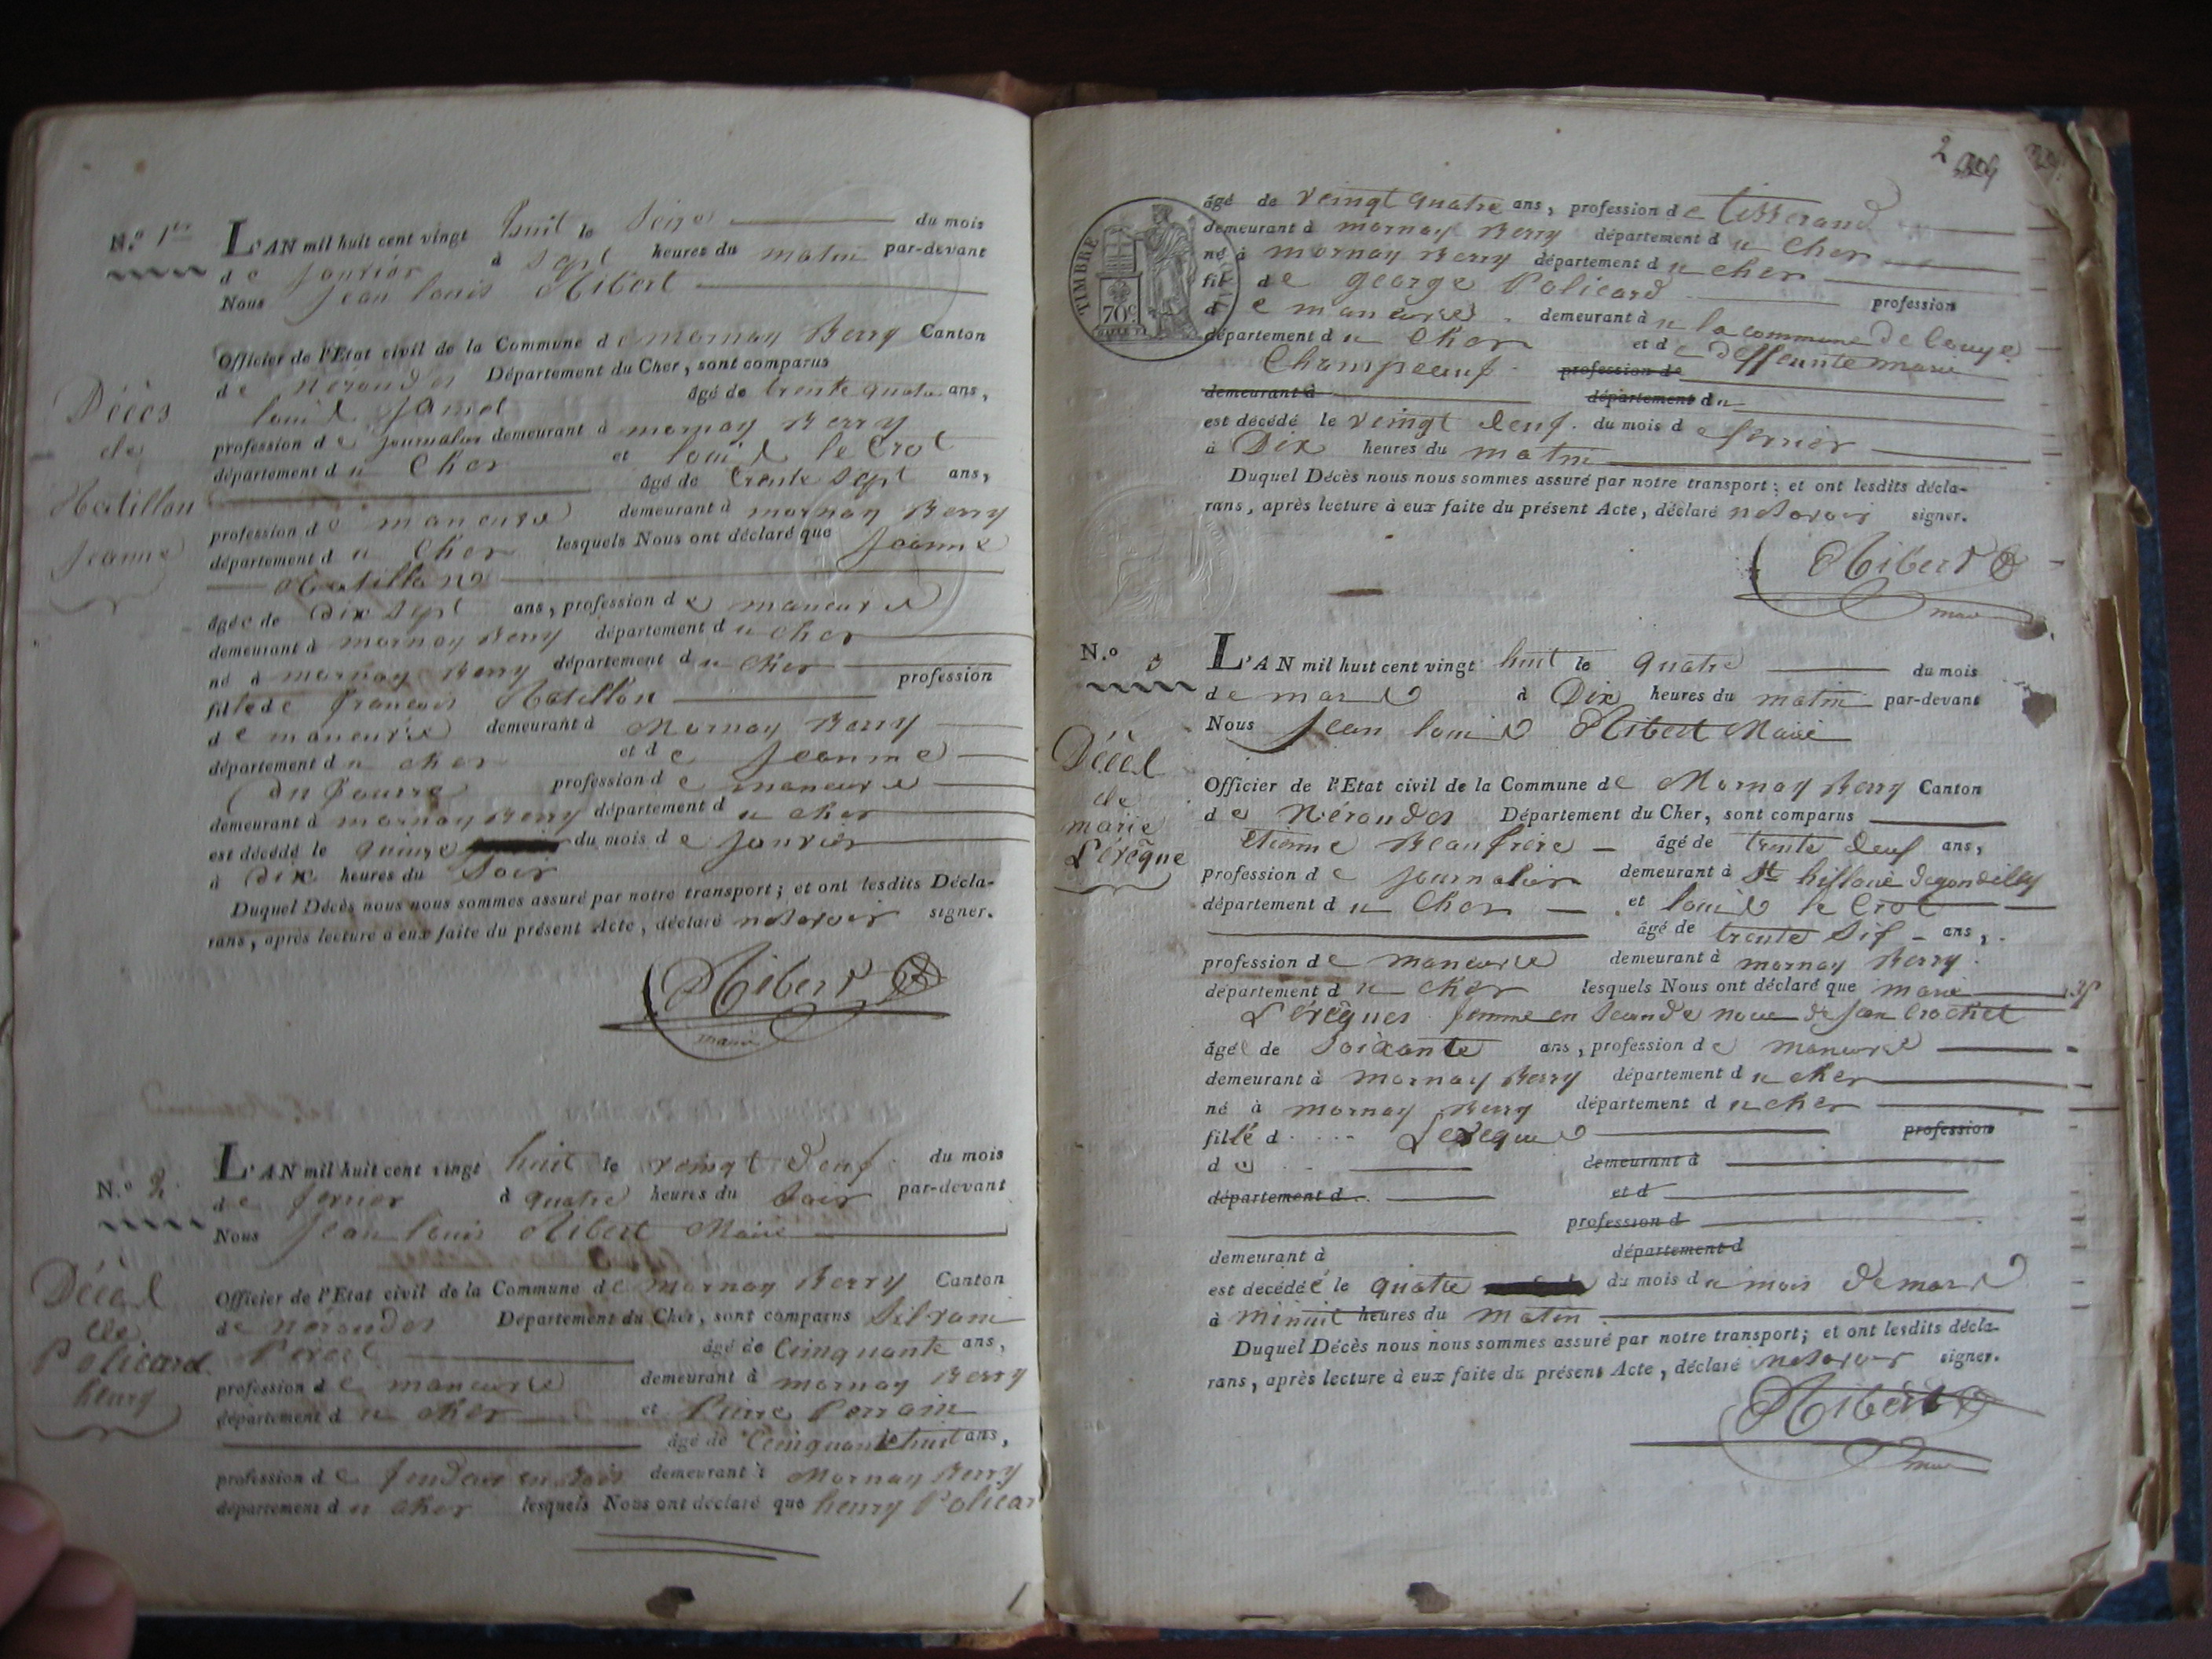 N.o 1er
L'AN mil huit cent vingt huit le Seize du mois
de janvier à sept heures du matin par-devant
Nous Jean louis
Officier de l'Etat civil de la Commune de mornay Berry Canton
de nérondes Département du Cher, sont comparus
louis Jamet âgé de trente quatre ans,
profession de journalier demeurant à mornay Berry
département du Cher et louis le Crot
âgé de trente sept ans,
profession de maneuvre demeurant à mornay Berry
département du Cher lesquels Nous ont déclaré que Jeanne
Décès
de
Hatillon
Jeanne
Hatillon
âgée de Dix sept ans, profession de maneuvre
demeurant à mornay Berry département du Cher
né à mornay Berry département du Cher
fille de francois Hatillon profession
de maneuvre demeurant à Mornay Berry
département du cher et de Jeanne
profession de maneuvre
demeurant à mornay Berry département du cher
est décédé le quinze du mois de janvier
à dix heures du Soir
Duquel Décès nous nous sommes assuré par notre transport; et ont lesdits Décla-
rans, après lecture à eux faite du présent Acte, déclaré ne savoir signer.
maire
N.o 2
L'AN mil huit cent vingt huit le veingt deuf du mois
de fevrier à quatre heures du Soir par-devant
Nous Jean louis Maire
Décès
de
Policard
henry
Officier de l'Etat civil de la Commune de mornay Berry Canton
de nérondes Département du Cher, sont comparus Silvain
âgé de Cinquante ans,
profession de maneuvre demeurant à mornay Berry
département du cher et Pierre Perrain
âgé de Cinquante huit ans,
profession de fendeur en Bois demeurant à Mornay Berry
département du cher lesquels Nous ont déclaré que henry Policar
2
TIMBRE
70c
âgé de veingt quatre ans, profession de tisserand
demeurant à mornay Berry département du Cher
né à mornay Berry département du cher
fils de george Policard profession
de maneuvre demeurant à la commune de Couy
département du Cher et de deffeunte marie
Champeauf profession de
demeurant à département du
est décédé le veingt deuf du mois de fevrier
à Dix heures du matin
Duquel Décès nous nous sommes assuré par notre transport; et ont lesdits décla-
rans, après lecture à eux faite du présent Acte, déclaré ne savoir signer.
maire
N.o 3
L'AN mil huit cent vingt huit le quatre du mois
de mars à Dix heures du matin par-devant
Nous Jean louis Maire
Décès
de
marie
Levêque
Officier de l'Etat civil de la Commune de Mornay Berry Canton
de Nérondes Département du Cher, sont comparus
Etienne Beaufrere âgé de trente deuf ans,
profession de journalier demeurant à St hillaire de gondilly
département du Cher et louis le Crot
âgé de trente sif ans,
profession de maneuvre demeurant à mornay Berry
département du cher lesquels Nous ont déclaré que marie
Levêques femme en seconde noce de Jean Crochet
âgé de Soixante ans, profession de maneuvre
demeurant à mornay Berry département du cher
né à mornay Berry département du cher
fille d Leveque profession
de demeurant à
département d et d
profession d
demeurant à département d
est décédée le quatre du mois du mois de mars
à minuit heures du matin
Duquel Décès nous nous sommes assuré par notre transport; et ont lesdits décla-
rans, après lecture à eux faite du présent Acte, déclaré ne savoir signer.
maire